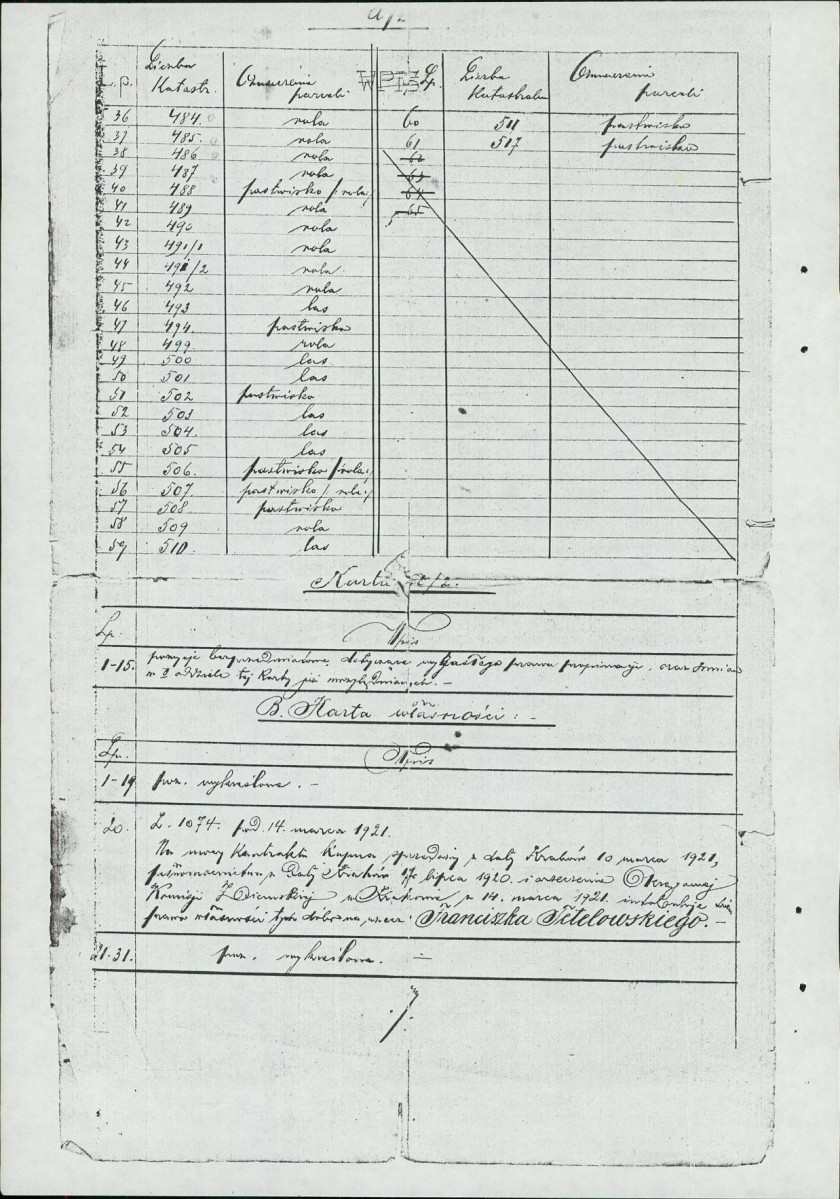 L. p. Liczba Katastr. Oznaczenie parceli WPIS Lp. Liczba Katastralna Oznaczenie parceli
36 484. rola 60 511 pastwisko
37 485. rola 61 517 pastwisko
38 486 rola 62
39 487 rola 63
40 488 pastwisko /:rola:/ 64
41 489 rola 65
42 490 rola
43 491/1 rola
44 491/2 rola
45 492 rola
46 493 las
47 494. pastwisko
48 499. rola
49 500 las
50 501 las
51 502 pastwisko
52 503 las
53 504. las
54 505 las
55 506. pastwisko /:rola:/
56 507. pastwisko /:rola:/
57 508. pastwisko
58 509 rola
59 510. las
Karta /2.
Lp. Wpis
1-15. pozycje bezprzedmiotowe, dotyczące wygasłego prawa propinacji, oraz zmian
w II oddziele tej Karty już uwzględnionych. -
B. Karta własności: -
Lp. Wpis
1-19 poz. wykreślone. -
20. L. 1074. pod. 14. marca 1921.
Na mocy Kontraktu kupna sprzedaży z daty Kraków 10 marca 1921,
pełnomocnictwa z daty Kraków lipca 1920. i orzeczenia Okręgowej
Komisji Ziemskiej w Krakowie z 14. marca 1921. intabuluje się
prawo własności tych dóbr na rzecz: Franciszka Tetelowskiego. -
21-31. poz. wykreślone. -